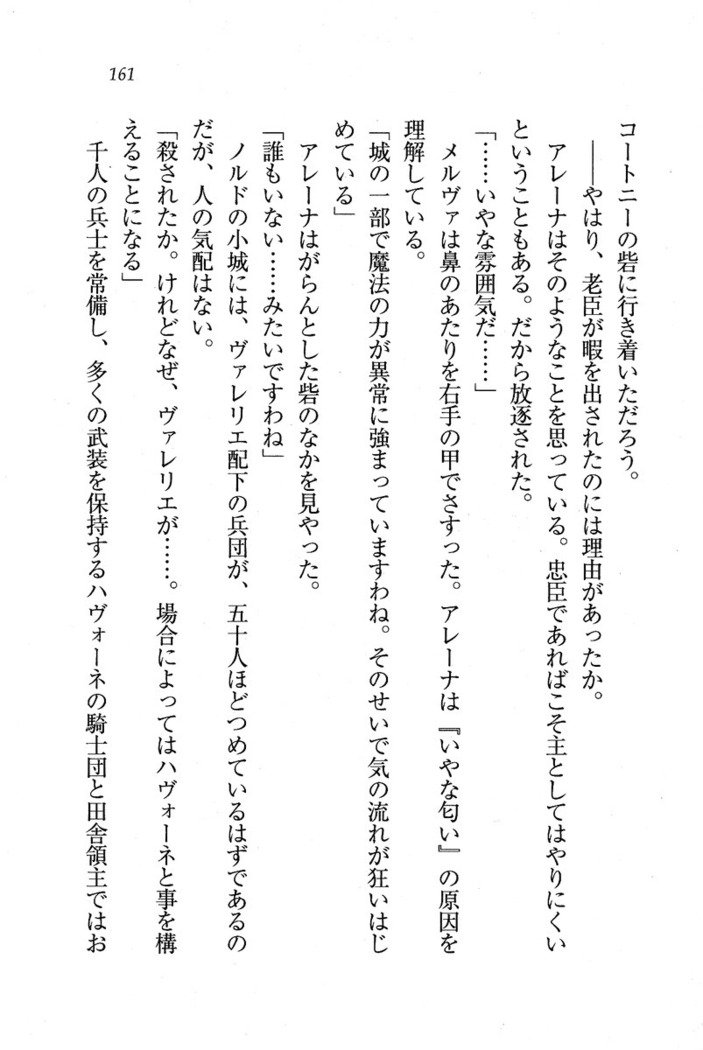 161
コートニーの砦に行き着いただろう。
――やはり、老臣が暇を出されたのには理由があったか。
アレーナはそのようなことを思っている。忠臣であればこそ主としてはやりにくい
ということもある。だから放逐された。
「……いやな雰囲気だ……」
メルヴァは鼻のあたりを右手の甲でさすった。アレーナは『いやな匂い』の原因を
理解している。
「城の一部で魔法の力が異常に強まっていますわね。そのせいで気の流れが狂いはじ
めている」
アレーナはがらんとした砦のなかを見やった。
「誰もいない……みたいですわね」
ノルドの小城には、ヴァレリエ配下の兵団が、五十人ほどつめているはずであるの
だが、人の気配はない。
「殺されたか。けれどなぜ、ヴァレリエが……。場合によってはハヴォーネと事を構
えることになる」
千人の兵士を常備し、多くの武装を保持するハヴォーネの騎士団と田舎領主ではお